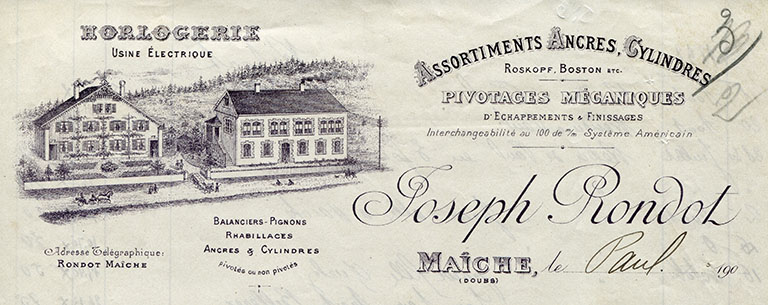 HORLOGERIE
USINE ÉLECTRIQUE
ADRESSE TÉLÉGRAPHIQUE:
RONDOT MAÎCHE
BALANCIERS-PIGNONS
RHABILLAGES
ANCRES & CYLINDRES
pivotés ou non pivotés
ASSORTIMENTS ANCRES, CYLINDRES
ROSKOPF, BOSTON ETC.
PIVOTAGES MÉCANIQUES
D'ECHAPPEMENTS & FINISSAGES
Interchangeabilité au 100 de m/m Système Américain
Joseph Rondot
MAÎCHE, le Paul. 190
(DOUBS)